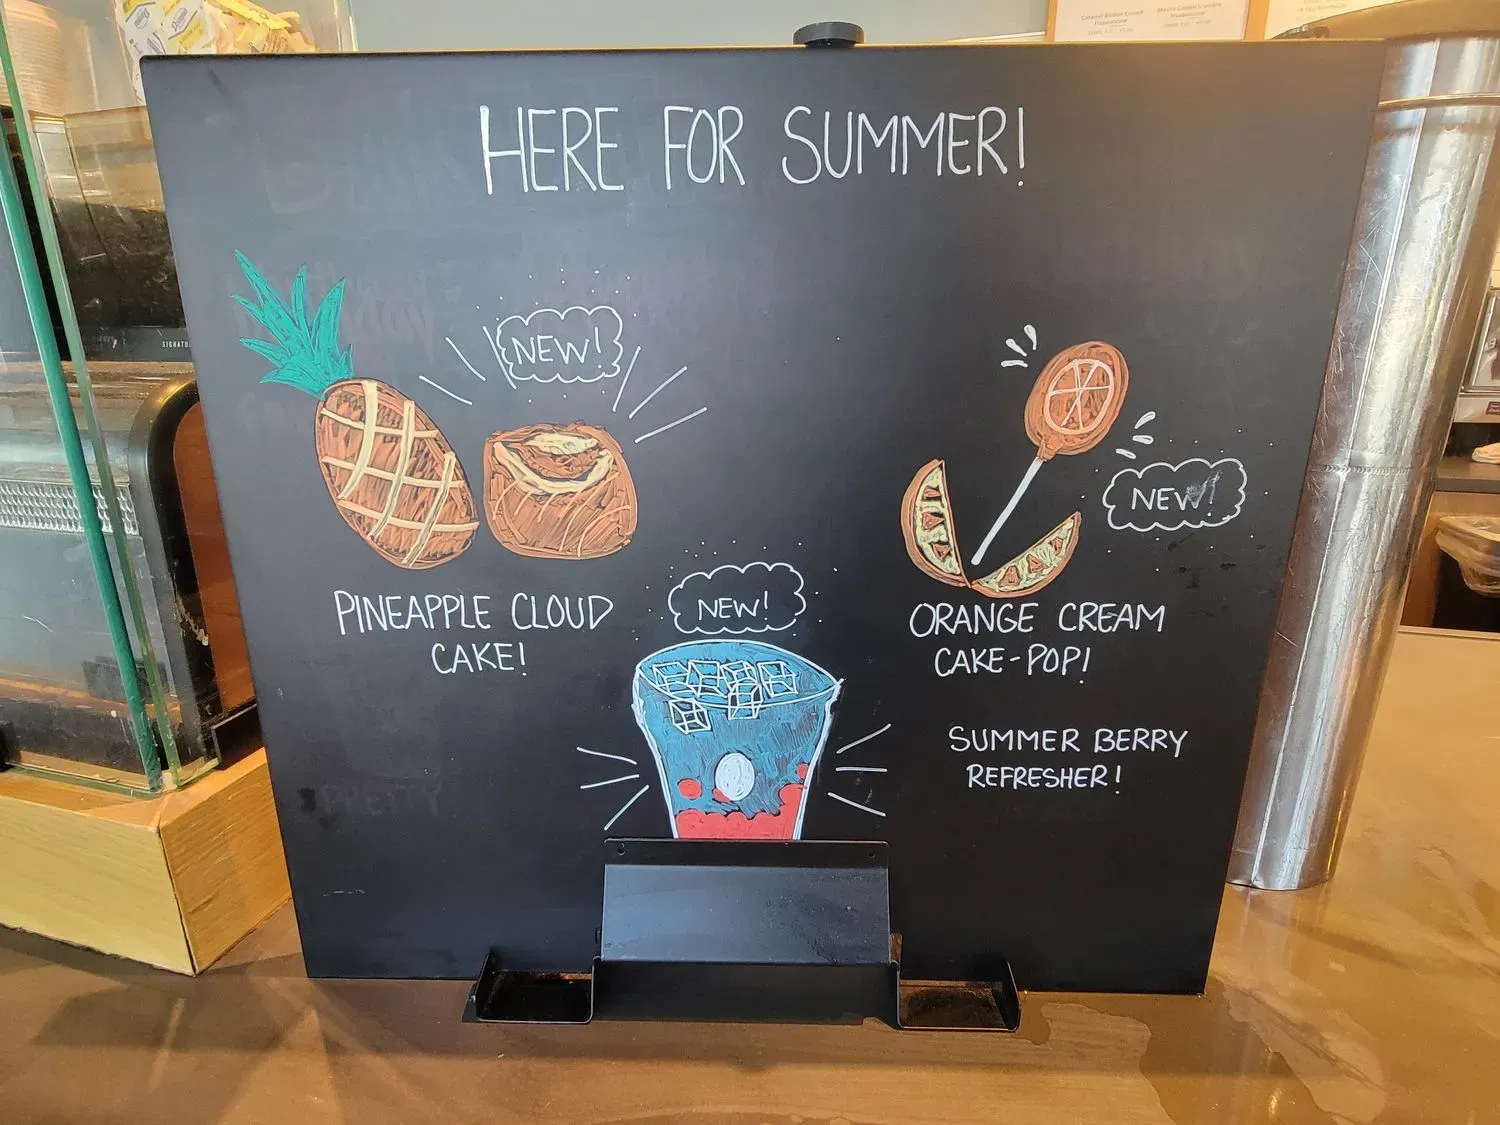 HERE FOR SUMMER!
NEW!
PINEAPPLE CLOUD
CAKE!
NEW!
ORANGE CREAM
CAKE-POP!
NEW!
SUMMER BERRY
REFRESHER!